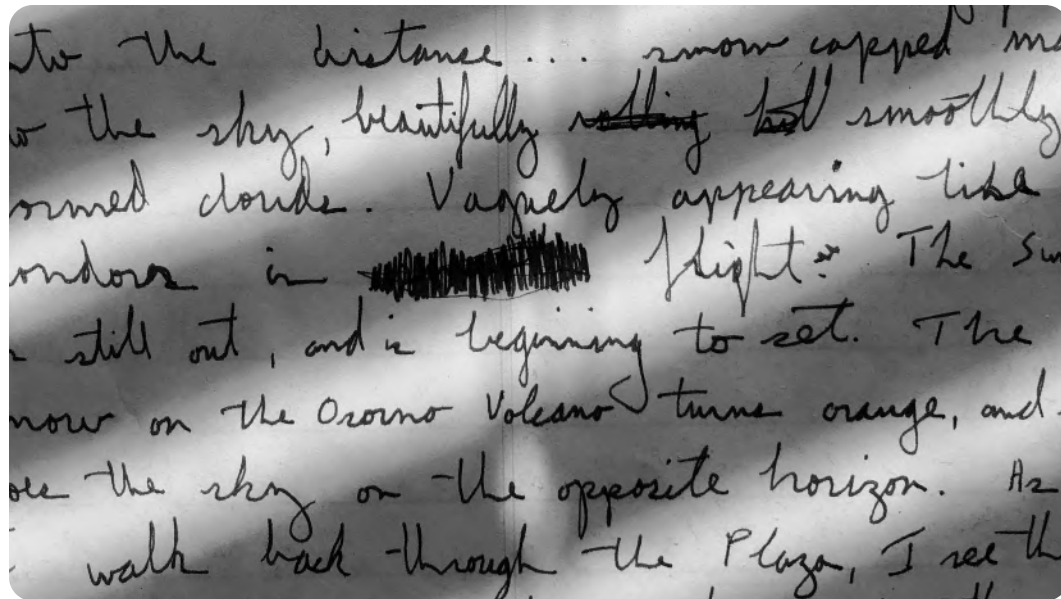 nto the distance... snow capped mo
o the sky, beautifully rolling but smoothly
ormed clouds. Vaguely appearing like
ondors in flight. The Sun
still out, and is beginning to set. The
now on the Osorno Volcano turns orange, and
oes the sky on the opposite horizon. As
I walk back through the Plaza, I see th